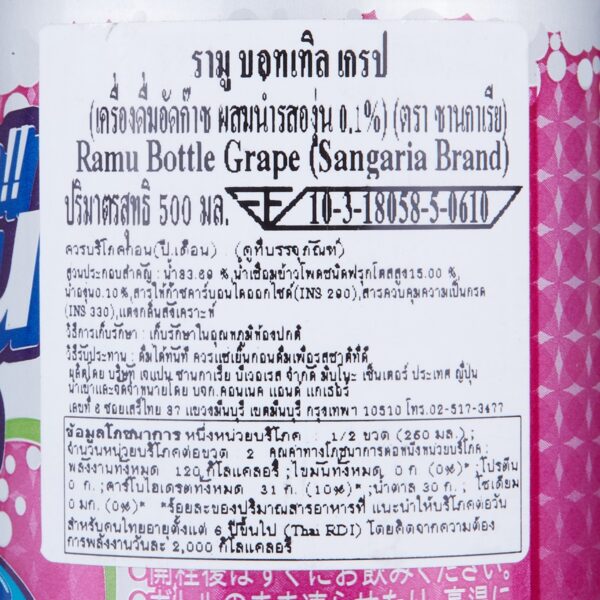 รามู บอทเทิล เกรป
(เครื่องดื่มอัดก๊าซ ผสมน้ำรสองุ่น 0.1%) (ตรา ซานกาเรีย)
Ramu Bottle Grape (Sangaria Brand)
ปริมาตรสุทธิ 500 มล. 10-3-18058-5-0610
ควรบริโภคก่อน(ปี.เดือน) (ดูที่บรรจุภัณฑ์)
ส่วนประกอบสำคัญ : น้ำ83.69 %,น้ำเชื่อมข้าวโพดชนิดฟรุกโตสสูง15.00 %,
น้ำองุ่น0.10%,สารให้ก๊าซคาร์บอนไดออกไซด์(INS 290),สารควบคุมความเป็นกรด
(INS 330),แต่งกลิ่นสังเคราะห์
วิธีการเก็บรักษา : เก็บรักษาในอุณหภูมิห้องปกติ
วิธีรับประทาน : ดื่มได้ทันที ควรแช่เย็นก่อนดื่มเพื่อรสชาติที่ดี
ผลิตโดย บริษัท เจแปน ซานกาเรีย บีเวอเรส จำกัด มับโนะ เซ็นเตอร์ ประเทศ ญี่ปุ่น
นำเข้าและจัดจำหน่ายโดย บจก.คอนเนค แอนด์ แกเธอร์
เลขที่ 6 ซอยเสรีไทย 87 แขวงมีนบุรี เขตมีนบุรี กรุงเทพฯ 10510 โทร.02-517-3477
ข้อมูลโภชนาการ หนึ่งหน่วยบริโภค : 1/2 ขวด (250 มล.);
จำนวนหน่วยบริโภคต่อขวด 2 คุณค่าทางโภชนาการต่อหนึ่งหน่วยบริโภค;
พลังงานทั้งหมด 120 กิโลแคลอรี่;ไขมันทั้งหมด 0 ก (0%)* ;โปรตีน
0 ก.;คาร์โบไฮเดรตทั้งหมด 31 ก. (10%)* ;น้ำตาล 30 ก.; โซเดียม
0 มก.(0%)* *ร้อยละของปริมาณสารอาหารที่ แนะนำให้บริโภคต่อวัน
สำหรับคนไทยอายุตั้งแต่ 6 ปีขึ้นไป (Thai RDI) โดยคิดจากความต้อง
การพลังงานวันละ 2,000 กิโลแคลอรี่
開栓後はすぐにお飲みください。